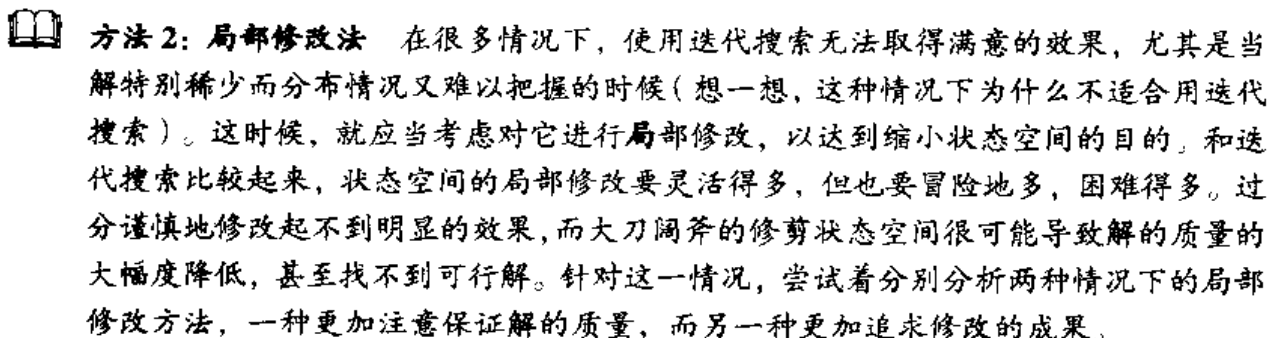 方法 2：局部修改法 在很多情况下，使用迭代搜索无法取得满意的效果，尤其是当
解特别稀少而分布情况又难以把握的时候（想一想，这种情况下为什么不适合用迭代
搜索）。这时候，就应当考虑对它进行局部修改，以达到缩小状态空间的目的。和迭
代搜索比较起来，状态空间的局部修改要灵活得多，但也要冒险地多，困难得多。过
分谨慎地修改起不到明显的效果，而大刀阔斧的修剪状态空间很可能导致解的质量的
大幅度降低，甚至找不到可行解。针对这一情况，尝试着分别分析两种情况下的局部
修改方法，一种更加注意保证解的质量，而另一种更加追求修改的成果。